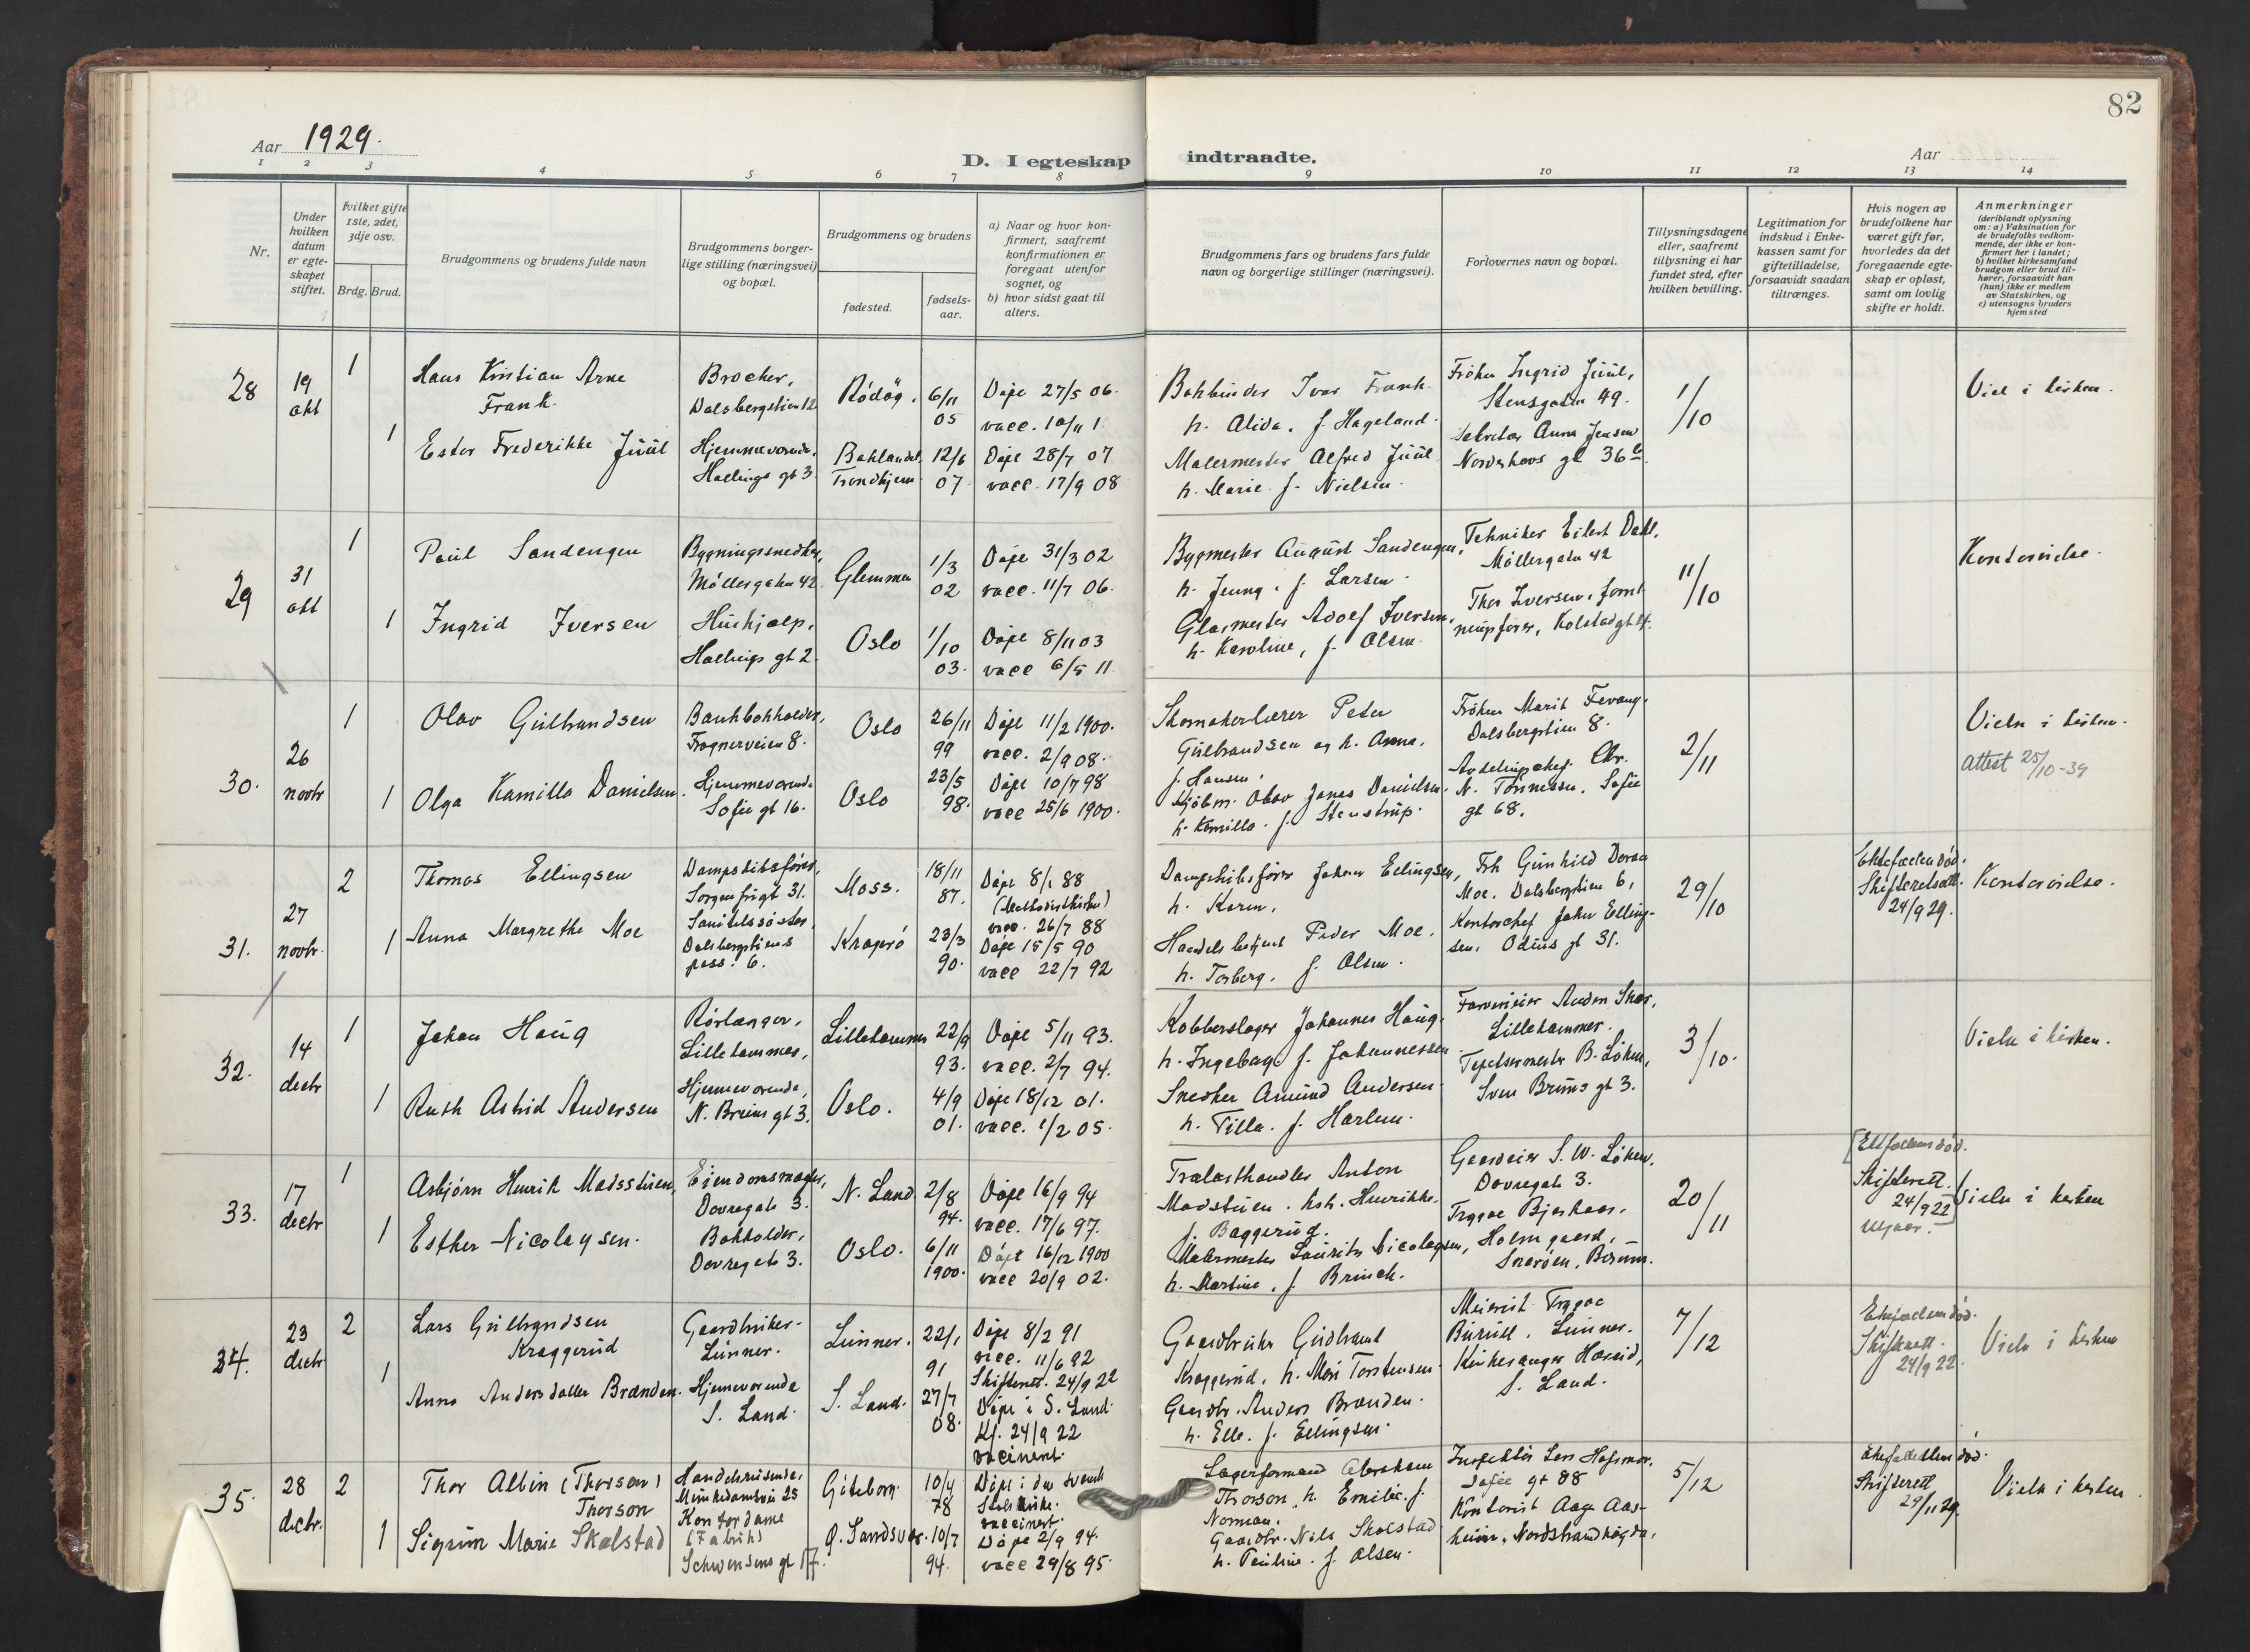 82
Aar 1929.
D. I egteskap indtraadte.
Aar
1 2 3 4 5 6 7 8 9 10 11 12 13 14
Nr.
Under hvilken datum er egteskapet stiftet.
hvilket gifte 1ste, 2det, 3dje osv.
Brdg. Brud.
Brudgommens og brudens fulde navn
Brudgommens borgerlige stilling (næringsvei) og bopæl.
Brudgommens og brudens
fødested.
fødselsaar.
a) Naar og hvor konfirmert, saafremt konfirmationen er foregaat utenfor sognet, og
b) hvor sidst gaat til alters.
Brudgommens fars og brudens fars fulde navn og borgerlige stillinger (næringsvei).
Forlovernes navn og bopæl.
Tillysningsdagene eller, saafremt tillysning ei har fundet sted, efter hvilken bevilling.
Legitimation for indskud i Enkekassen samt for giftetilladelse, forsaavidt saadan tiltrænges.
Hvis nogen av brudefolkene har været gift før, hvorledes da det foregaaende egteskap er opløst, samt om lovlig skifte er holdt.
Anmerkninger
(deriblandt oplysning om: a) Vaksination for de brudefolks vedkommende, der ikke er konfirmert her i landet;
b) hvilket kirkesamfund brudgom eller brud tilhører, forsaavidt han (hun) ikke er medlem av Statskirken, og
c) utensogns bruders hjemsted
28
19
okt
1
Hans Kristian Arne
Frank.
Dalsbergstien 12
Rödöy.
6/11
05
Døpt 27/5 06.
vacc. 10/11 1
Bokbinder Ivar Frank
h. Alida. f. Hageland.
Frøken Ingrid Juul,
Stensgaten 49.
1/10
Viet i kirken.
1
Ester Frederikke Juul
Hjemmeværende,
Hallings gt 3.
Baklandet
Trondhjem
12/6
07.
Døpt 28/7 07
vacc. 17/9 08
Malermester Alfred Juul
h. Marie f. Nielsen.
Sekretær Anna Jensen
29
31
okt
1
Paul Sandengen
Bygningssnedker,
Møllergaten 42
Glemmen
1/3
02
Døpt 31/3 02
vacc. 11/7 06.
Bygmester August Sandengen,
h. Jenny. f. Larsen.
Tekniker Eilert Dahl,
Møllergaten 42
11/10
Kontorvielse.
1
Ingrid Iversen
Hushjælp,
Hallings gt 2.
Oslo
1/10
03.
Døpt 8/11 03
vacc 6/5 11
Glasmester Adolf Iversen,
h. Karoline, f. Olsen
Thor Iversen,
30.
26
novbr
1
Olav Gulbrandsen
Bankbokholder,
Frognerveien 8.
Oslo
26/11
99
Døpt 11/2 1900.
vacc. 2/9 08.
Skomakerlærer Peter
Gulbrandsen og h. Anna.
f. Hansen.
Frøken Marit Fevang.
Dalsbergstien 8.
2/11
Vielse i kirken.
attest 25/10-39
1
Olga Kamilla Danielsen.
Hjemmeværende
Sofie gt 16.
Oslo
23/5
98.
Døpt 10/7 98
vacc 25/6 1900.
Kjøbm. Olav Jonas Danielsen.
h. Kamilla. f. Stenstrup.
Avdelingschef. Chr.
N. Tönnessen. Sofie
gt 68.
31.
27
novbr.
2
Thomas Ellingsen
Dampskibsfører,
Sorgenfrigt 31.
Moss.
18/11
87.
Døpt 8/1 88
(Methodistkirken)
vacc. 26/7 88
Dampskibsfører Johan Ellingsen,
h. Karen.
Frk Gunhild Dorau
Moe. Dalsbergstien 6,
29/10
Ektefællen død.
Skifteratt.
24/9 29.
Kontorvielse.
1
Anna Margrethe Moe
Sanitetssøster,
Dalsbergstiens
pass. 6.
Kragerö
23/3
90.
Døpt 15/5 90
vacc 22/7 92
Handelsbetjent Peder Moe.
h. Torborg. f. Olsen.
Kontorchef John Ellingsen. Odins gt 31.
32.
14
decbr
1
Johan Haug
Rørlægger,
Lillehammer,
Lillehammer
22/9
93.
Døpt 5/11 93.
vacc. 2/7 94.
Kobberslager Johannes Haug.
h. Ingeborg f. Johannessen
Lillehammer.
3/10.
Vielse i kirken.
1
Ruth Astrid Andersen
Hjemmeværende,
N. Bruns gt 3.
Oslo.
4/9
01.
Døpt 18/12 01.
vacc. 1/2 05.
Snedker Amund Andersen
h. Tilla. f. Harlem.
Tapetsermester B. Löken,
Sven Bruns gt 3.
33.
17
decbr
1
Asbjørn Henrik Madsstuen,
Eiendomsmægler,
Dovregate 3.
N. Land
2/8
94.
Døpt 16/9 94
vacc. 17/6 97.
Trælasthandler Anton
Madstuen. h. Henrikke.
f. Baggerud.
Gaardeier S. W. Löken.
Dovregate 3.
20/11
[Ektefællen død.
Skifterett.
24/9 22]
utgaar.
Vielse i kirken
1
Esther Nicolaysen.
Bokholder,
Dovregate 3.
Oslo.
6/11
1900.
Døpt 16/12 1900
vacc 20/9 02.
Malermester Laurits Nicolaysen,
h. Martine, f. Brinch.
Trygve Bjerknes.
Holmgaard,
Snarøen, Bærum.
34.
23
decbr
2
Lars Gulbrandsen
Kraggerud
Gaardbruker.
Lunner.
Lunner.
22/1
91
Døpt 8/2 91
vacc. 11/6 92
Skifterett. 24/9 22
Gaardbruker Gudbrand
Kraggerud, h. Mari Torstensen.
Meierist Trygve
Lunner.
7/12
Ektefællen død.
Skifterett.
24/9 22.
Vielse i kirken
1
Anna Andersdatter Brænden.
Hjemmeværende
S. Land.
S. Land.
27/7
08.
Døpt i S. Land.
Kf. 24/9 22
vaccinert.
Gaardbr. Anders Brænden.
h. Elle. f. Ellingsen.
Kirkesanger Hareid,
S. Land.
35.
28
decbr.
2
Thor Albin (Thorson)
Thorson
Handelsreisende,
Munkedamsvei 25
Göteborg.
10/4
78
Døpt i den svenske
Statskirke.
vaccinert.
Lagerformand Abraham
Thorson, h. Emilie f.
Norman.
Inspektør Lars
Sofie gt 88
5/12
Ektefællen død.
Skifterett
29/11 29.
Vielse i kirken.
1
Sigrun Marie Skalstad
Kontordame
(Fabrik)
Schwensens gt 17.
Ø. Sandsvær.
10/7
94.
Døpt 2/9 94.
vacc 29/8 95.
Gaardbr. Nils Skalstad
h. Pauline. f. Olsen.
Kontorist Aage Aasheim. Nordstrandhøgda.